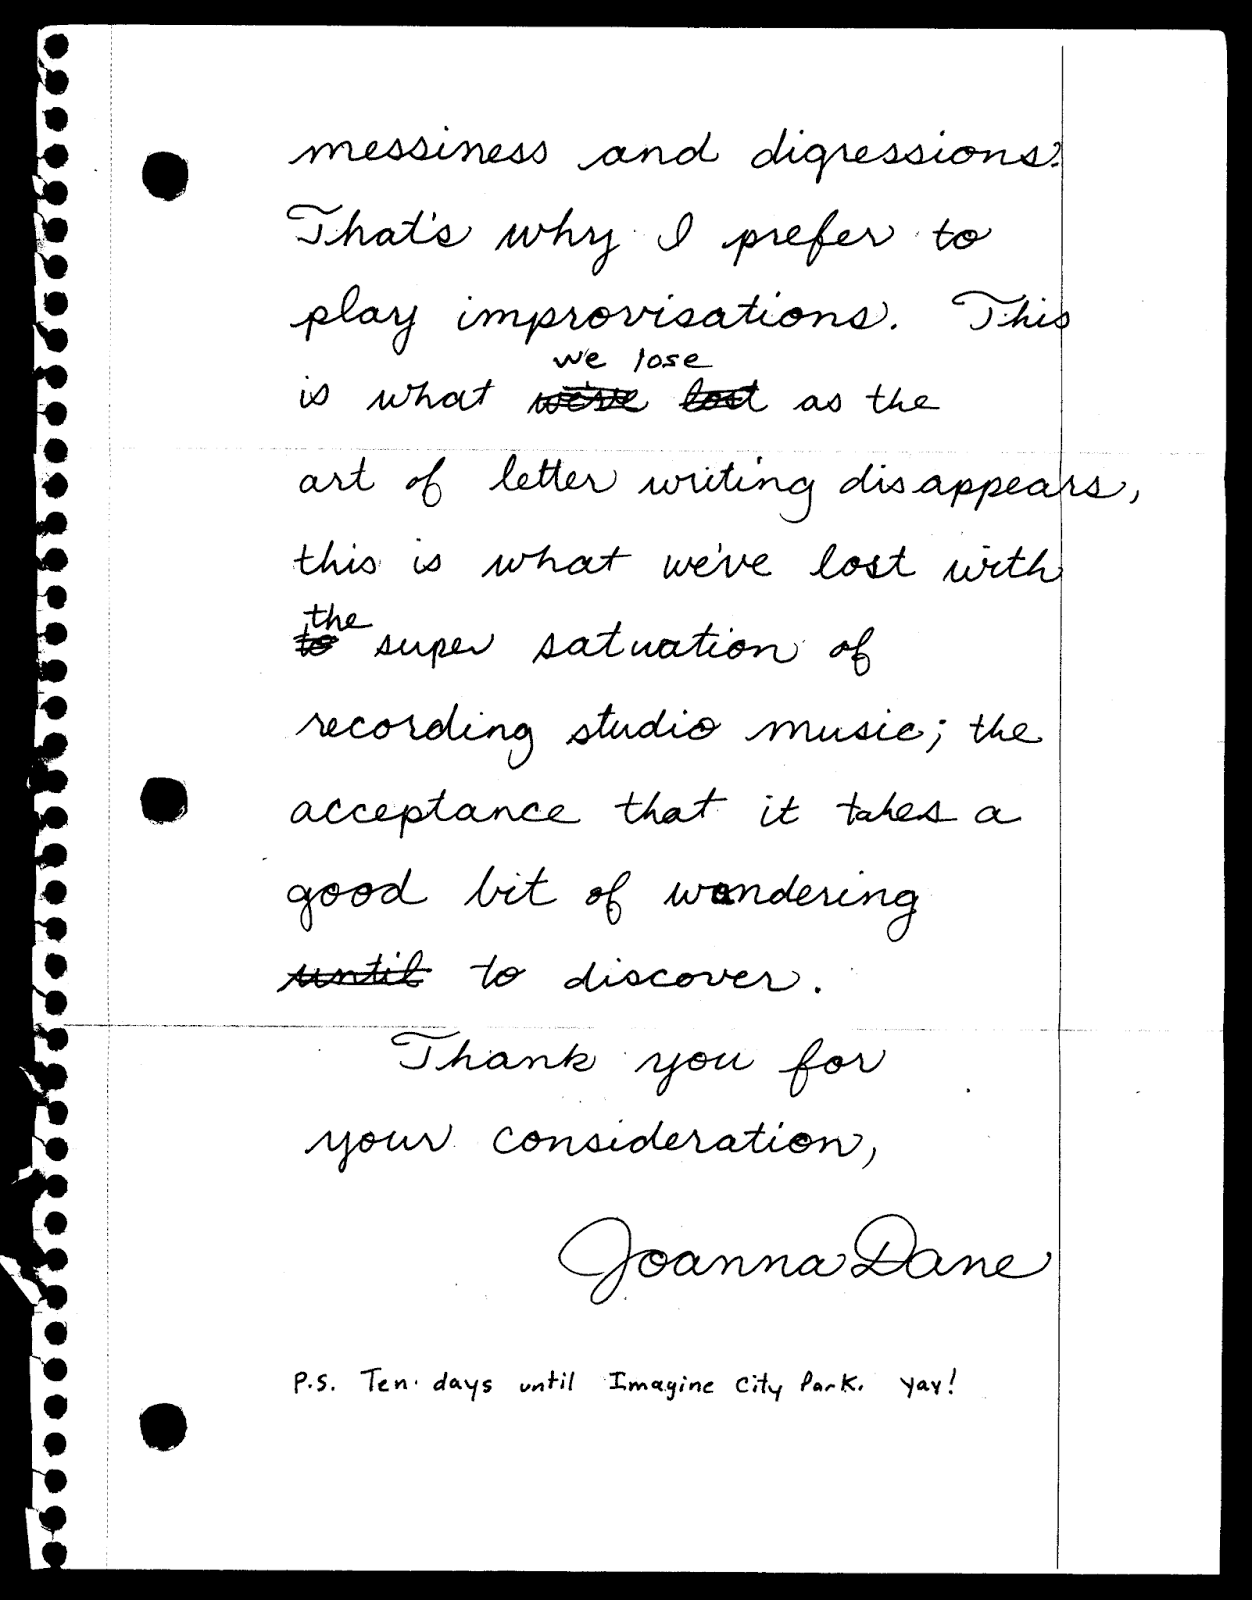 messiness and digressions?
That's why I prefer to
play improvisations. This
we lose
is what we've lost as the
art of letter writing disappears,
this is what we've lost with
the
to super satuation of
recording studio music; the
acceptance that it takes a
good bit of wandering
until to discover.
Thank you for
your consideration,
Joanna Dane
P.S. Ten days until Imagine City Park. yay!